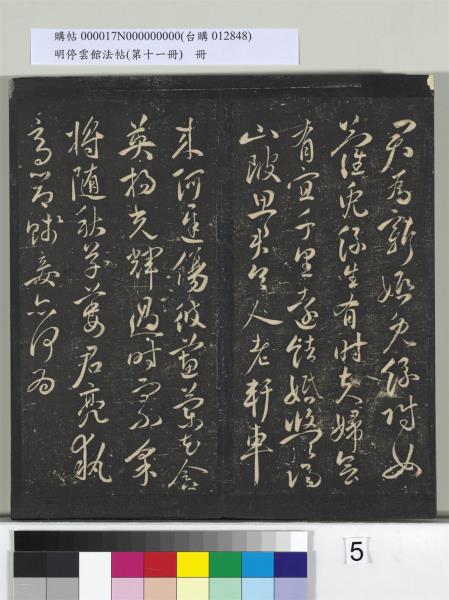 購帖 000017N000000000(台購 012848)
明停雲館法帖(第十一冊) 冊
君為新婚兔絲附女
蘿兔絲生有時夫婦會
有宜千里遠結婚悠悠隔
山陂思君令人老軒車
來何遲傷彼蕙蘭花含
英揚光輝過時而不采
將隨秋草萎君亮執
高節賤妾亦何為
5